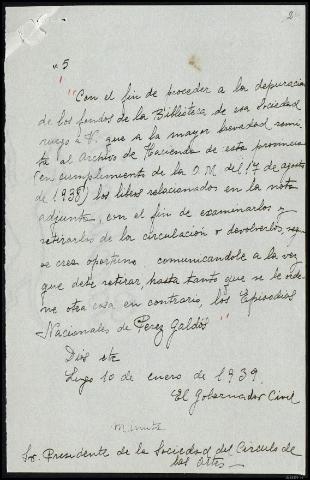 2
n 5
"Con el fin de proceder a la depuracion
de los fondos de la Biblioteca de esa Sociedad
ruego a V. que a la mayor brevedad remi-
ta al Archivo de Hacienda de esta provincia
(en cumplimiento de la O.M. del 17 de agosto
de 1938) los libros relacionados en la nota
adjunta, con el fin de examinarlos y
retirarlos de la circulación o devolverlos, segun
se crea oportuno comunicandole a la vez
que debe retirar, hasta tanto que se le orde-
ne otra cosa en contrario, los Episodios
Nacionales de Perez Galdós"
Dios etc
Lugo 10 de enero de 1939.
El Gobernador Civil
minuta
Sr. Presidente de la Sociedad del Circulo de
las Artes